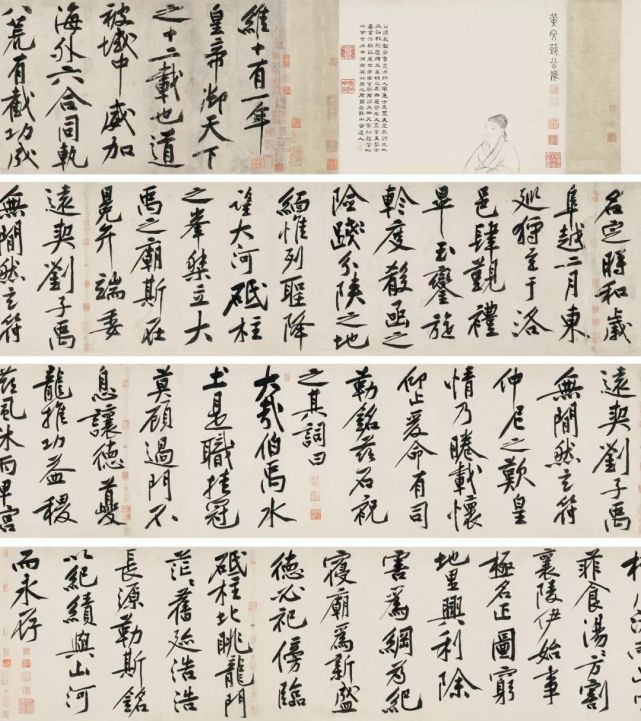 黃文節公像
維十有一年
皇帝御天下
之十二載也道
被域中威加
海外六合同軌
八荒有截功成
名定時和歲
阜越二月東
巡狩至于洛
邑肆覲禮
畢玉鑾旋
軫度殽函之
險踐分陝之地
緬惟列聖降
望大河砥柱
之峯桀立大
禹之廟斯在
冕弁端委
遠契劉子禹
無間然玄符
遠契劉子禹
無間然玄符
仲尼之歎皇
情乃睠載懷
仰止爰命有司
勒銘茲石祝
之其詞曰
大哉伯禹水
土是職挂冠
莫顧過門不
息讓德夔
龍推功益稷
茲風沐雨卑宮
菲食湯湯方割
襄陵伊始事
極名正圖窮
地里興利除
害為綱為紀
寢廟為新盛
德必祀傍臨
砥柱北眺龍門
茫茫舊跡浩浩
長源勒斯銘
以紀績與山河
而永存